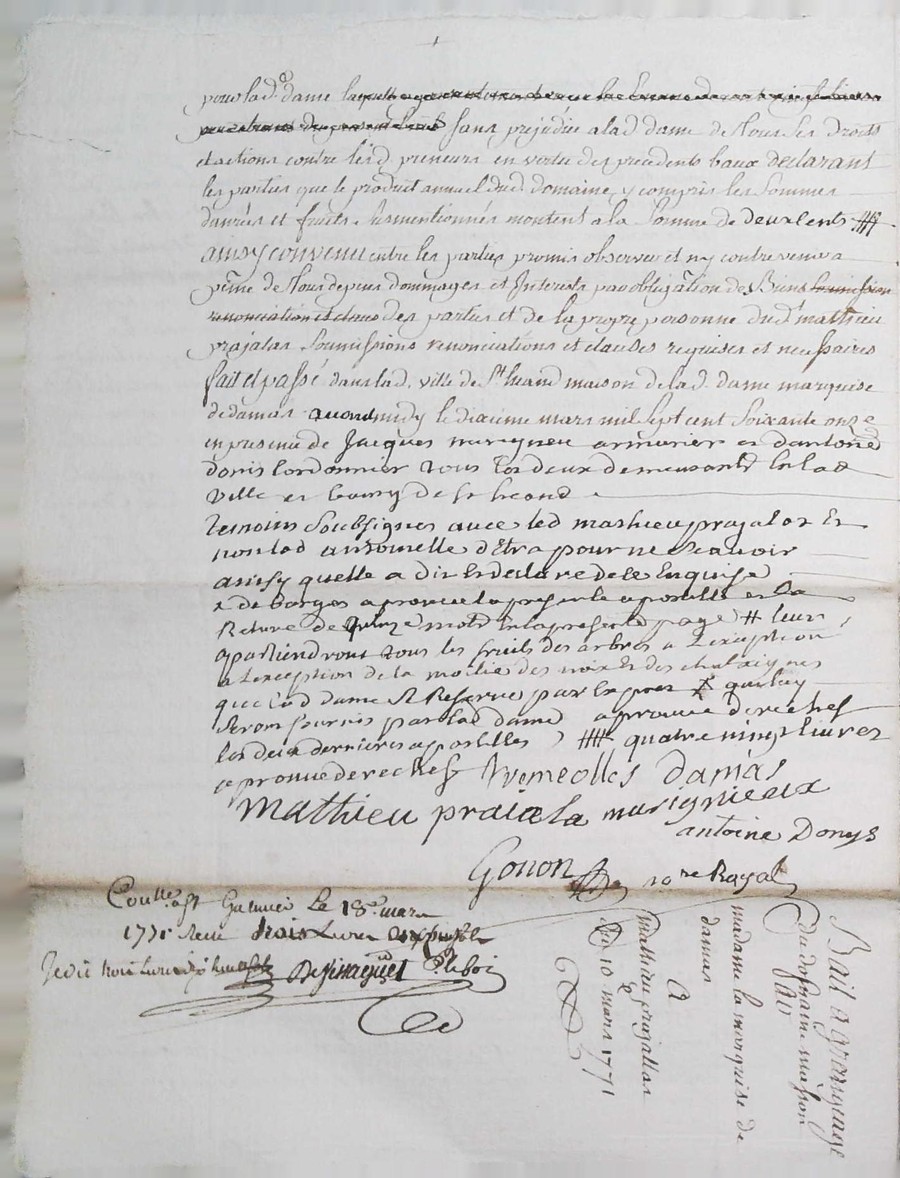 pour lad. dame laquelle
sans prejudice a lad dame de tous ses droits
et actions contre lesd preneurs en vertu des precedents baux declarant
les parties que le produit annuel dud. domaine y compris les sommes
danrées et fruits susmentionnés montent a la somme de deux cents ⧣
ainsy convenu entre les parties promis observer et ny contrevenir a
peine de tous depens dommages et Interests par obligation de Biens soumission
renonciation et clauses des parties et de la propre personne dud. mathieu
prajalas soumissions renonciations et clauses requises et necessaires
fait et passé dans lad. ville de St heand maison de lad. dame marquise
de damas avant midy le dixieme mars mil sept cent soixante onze
en presence de Jacques murigneu armurier et dantoine
donis Cordonnier tous les deux demeurants en lad
ville et bourg de St heand
temoins soubsignes avec led mathieu prajalas Et
non lad antoinelle d'Etra pour ne scavoir
ainsy quelle a dit Et declare de ce Enquise
aprouve la presente apostille et la
Rature de quinze mots en la presente page # leurs
apartiendront tous les fruits des arbres a Lexception
a Lexception de la moitie des noix Et des chataignes
que lad dame se Reserve par Expres quilux
seront fournis par lad dame aprouve derechef
les deux dernieres apostilles ) ⧣ quatre vingt livres
aprouve derechef tremeolles damas
Mathieu praiala murignieux
antoine Donys
Gonon nore Royal
Conlle. a St Galmier Le 18e. mars
1771 Receu trois Livres
Recu trois Livres
Bail a grangeage
du domaine maison
par
madame la marquise de
damas
A
mathieu prajallas
Du 10 mars 1771